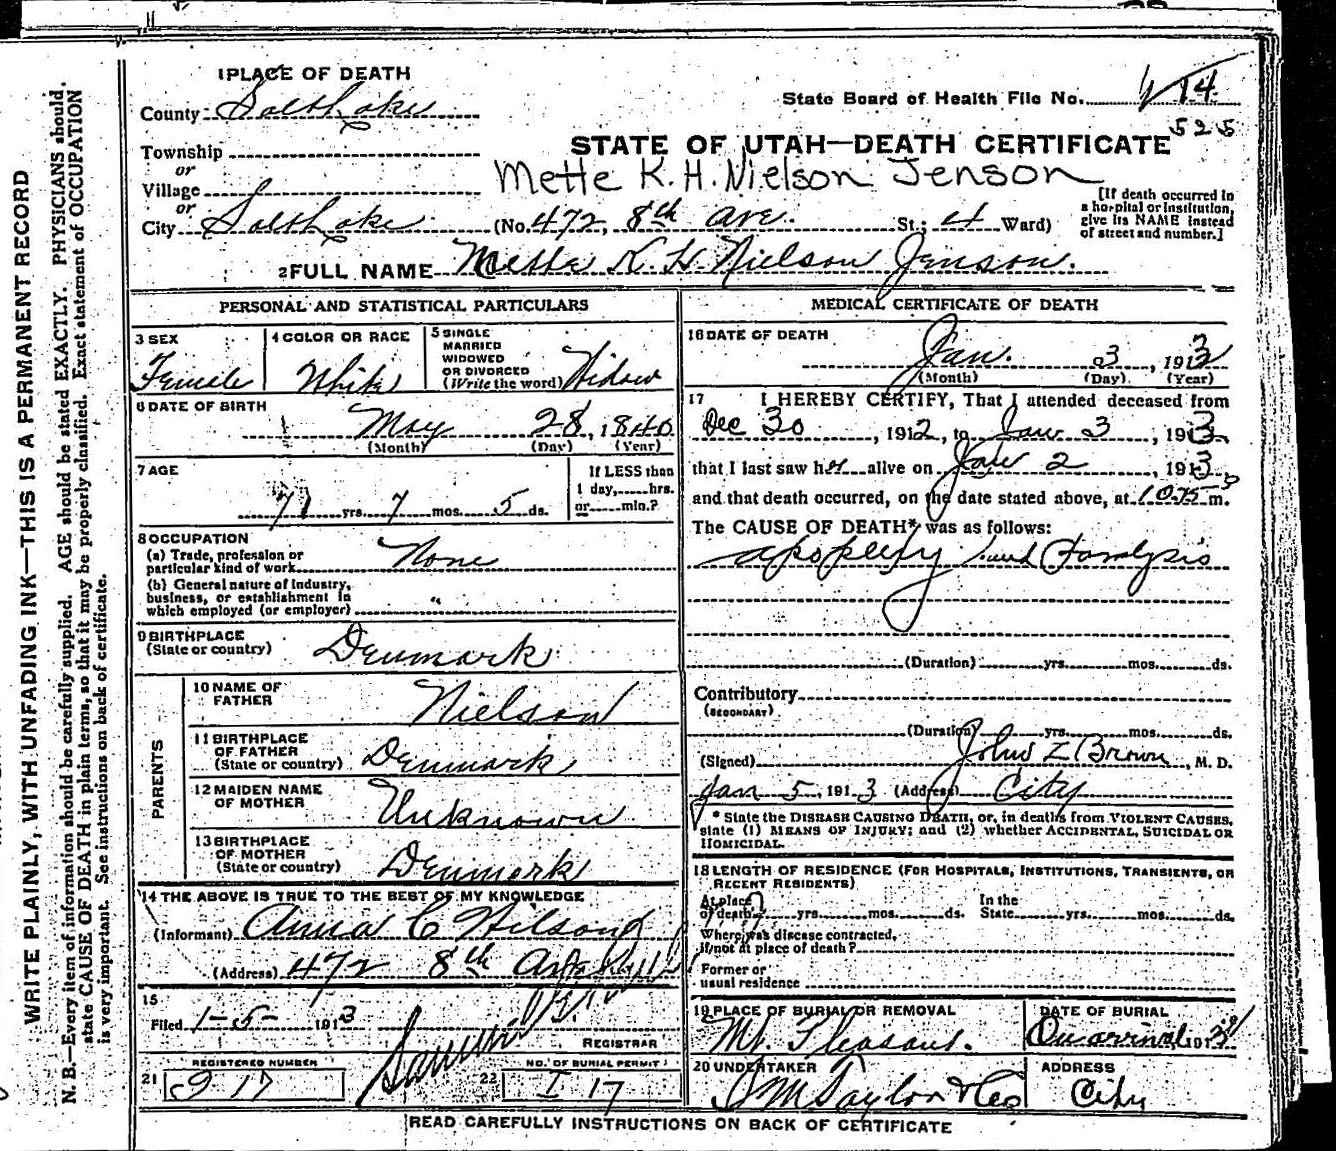 1 PLACE OF DEATH
County Salt Lake
State Board of Health File No. 14
525
Township
or
Village
or
City Salt Lake
STATE OF UTAH—DEATH CERTIFICATE
Mette K. H. Nielson Jenson
[If death occurred in
a hospital or institution,
give its NAME instead
of street and number.]
(No. 472, 8th ave. St.; 4 Ward)
2 FULL NAME Mette K. H. Nielson Jenson.
PERSONAL AND STATISTICAL PARTICULARS
3 SEX
Female
4 COLOR OR RACE
White
5 SINGLE
MARRIED
WIDOWED
OR DIVORCED
(Write the word) Widow
6 DATE OF BIRTH
May 28, 1840
(Month) (Day) (Year)
7 AGE
71 yrs. 7 mos. 5 ds.
If LESS than
1 day,......hrs.
or......min.?
8 OCCUPATION
(a) Trade, profession or
particular kind of work None
(b) General nature of industry,
business, or establishment in
which employed (or employer) "
9 BIRTHPLACE
(State or country) Denmark
PARENTS
10 NAME OF
FATHER Nielson
11 BIRTHPLACE
OF FATHER
(State or country) Denmark
12 MAIDEN NAME
OF MOTHER Unknown
13 BIRTHPLACE
OF MOTHER
(State or country) Denmark
14 THE ABOVE IS TRUE TO THE BEST OF MY KNOWLEDGE
(Informant) Anna C
(Address) 472 8th
15
Filed 1-5- 1913
REGISTRAR
REGISTERED NUMBER
21 917
NO. OF BURIAL PERMIT
22 I 17
MEDICAL CERTIFICATE OF DEATH
16 DATE OF DEATH
Jan. 3, 1913
(Month) (Day) (Year)
17 I HEREBY CERTIFY, That I attended deceased from
Dec 30, 1912, to Jan 3, 1913
that I last saw her alive on Jan 2, 1913
and that death occurred, on the date stated above, at m.
The CAUSE OF DEATH* was as follows:
apoplexy and Paralysis
(Duration) yrs. mos. ds.
Contributory
(SECONDARY)
(Duration) yrs. mos. ds.
(Signed) John Z Brown, M. D.
Jan 5, 1913 (Address) City
* State the DISEASE CAUSING DEATH, or, in deaths from VIOLENT CAUSES,
state (1) MEANS OF INJURY; and (2) whether ACCIDENTAL, SUICIDAL OR
HOMICIDAL.
18 LENGTH OF RESIDENCE (FOR HOSPITALS, INSTITUTIONS, TRANSIENTS, OR
RECENT RESIDENTS)
At place
of death yrs. mos. ds.
In the
State yrs. mos. ds.
Where was disease contracted,
if not at place of death?
Former or
usual residence
19 PLACE OF BURIAL OR REMOVAL
Mt. Pleasant.
DATE OF BURIAL
On arrival, 1913
20 UNDERTAKER
S M Taylor & Co
ADDRESS
City
READ CAREFULLY INSTRUCTIONS ON BACK OF CERTIFICATE
WRITE PLAINLY, WITH UNFADING INK—THIS IS A PERMANENT RECORD
N. B.—Every item of information should be carefully supplied. AGE should be stated EXACTLY. PHYSICIANS should
state CAUSE OF DEATH in plain terms, so that it may be properly classified. Exact statement of OCCUPATION
is very important. See instructions on back of certificate.